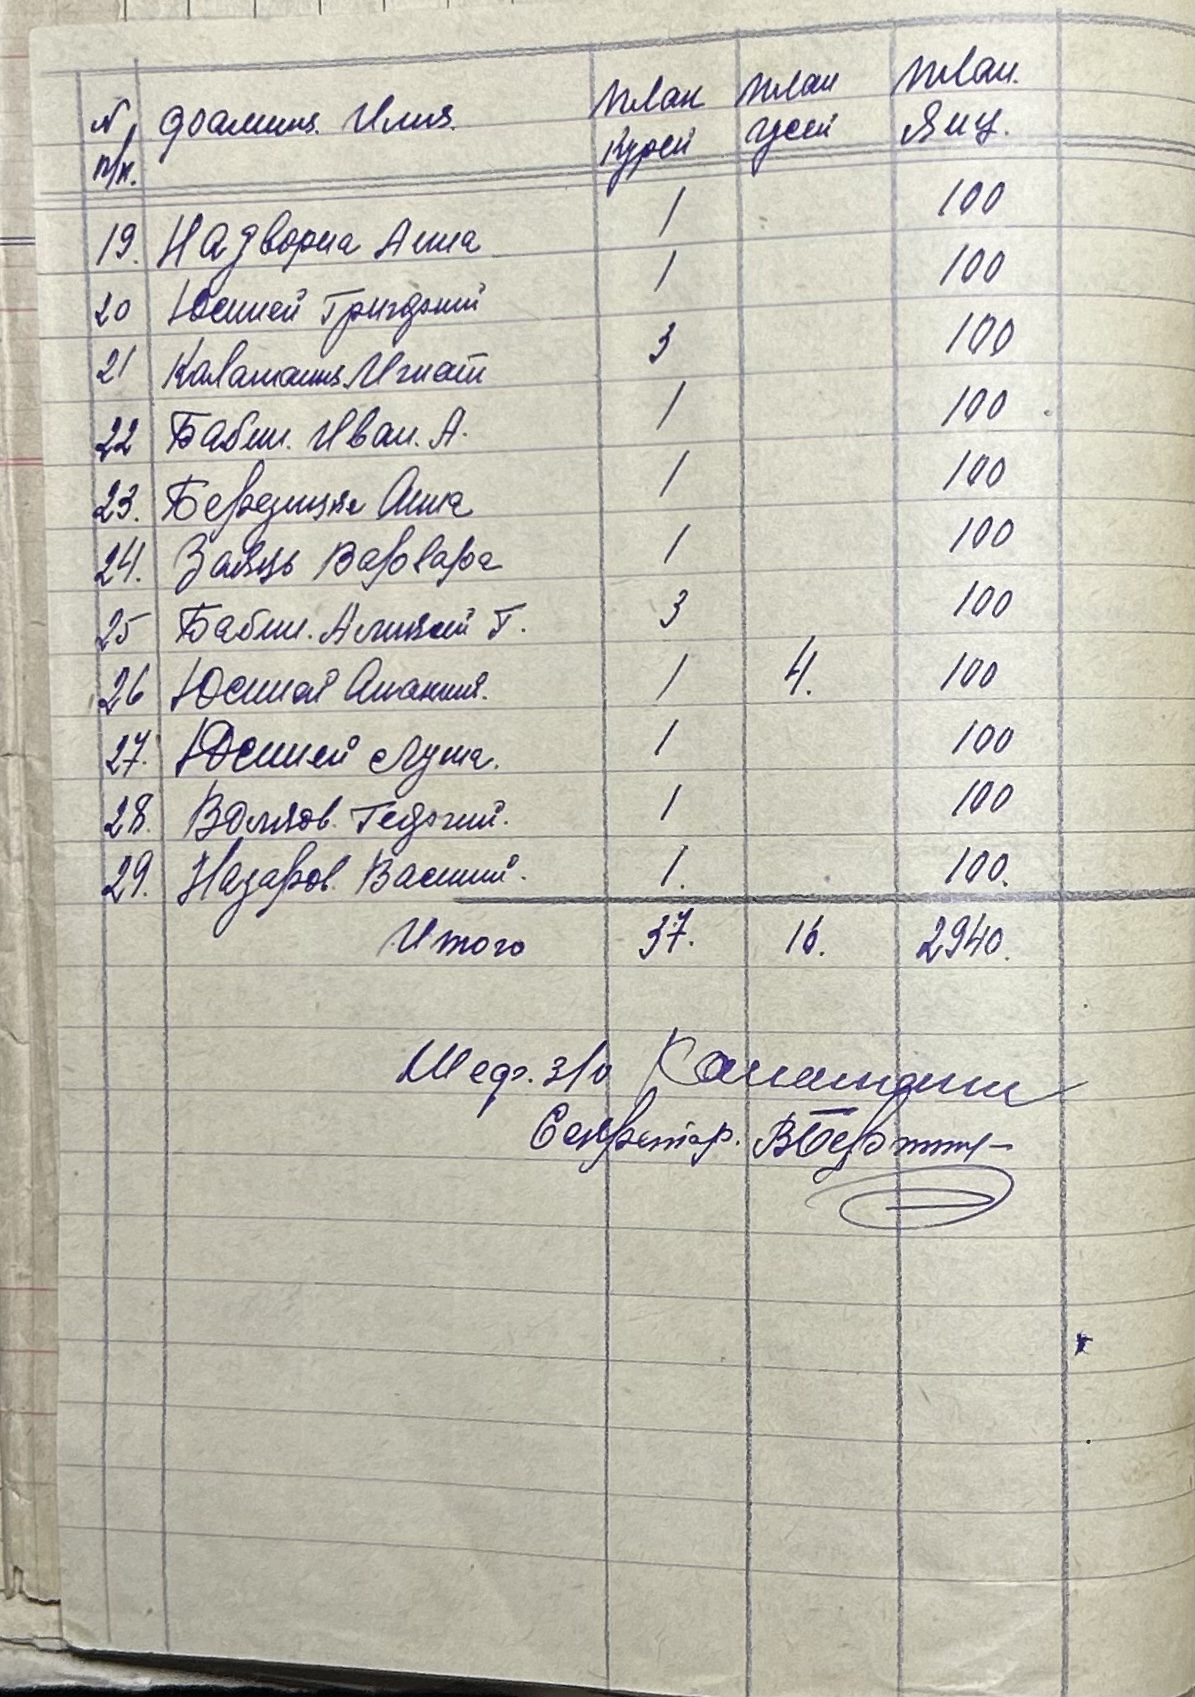 N п/п. Фамилия. Имя. План курей План гусей План. Яиц.
19. Надворна Анна 1 100
20 Юсипей Григорий 1 100
21 Игнат 3 100
22 Бабин. Иван. А. 1 100
23. Анна 1 100
24. Заяць Варвара 1 100
25 Бабин. Алексей Г. 3 100
26 Юсипей Ананий. 1 4. 100
27. Юсипей Луша. 1 100
28. Волков. Георгий. 1 100
29. Назаров. Василий. 1. 100.
Итого 37. 16. 2940.
Шеф. з/о
Секретар.